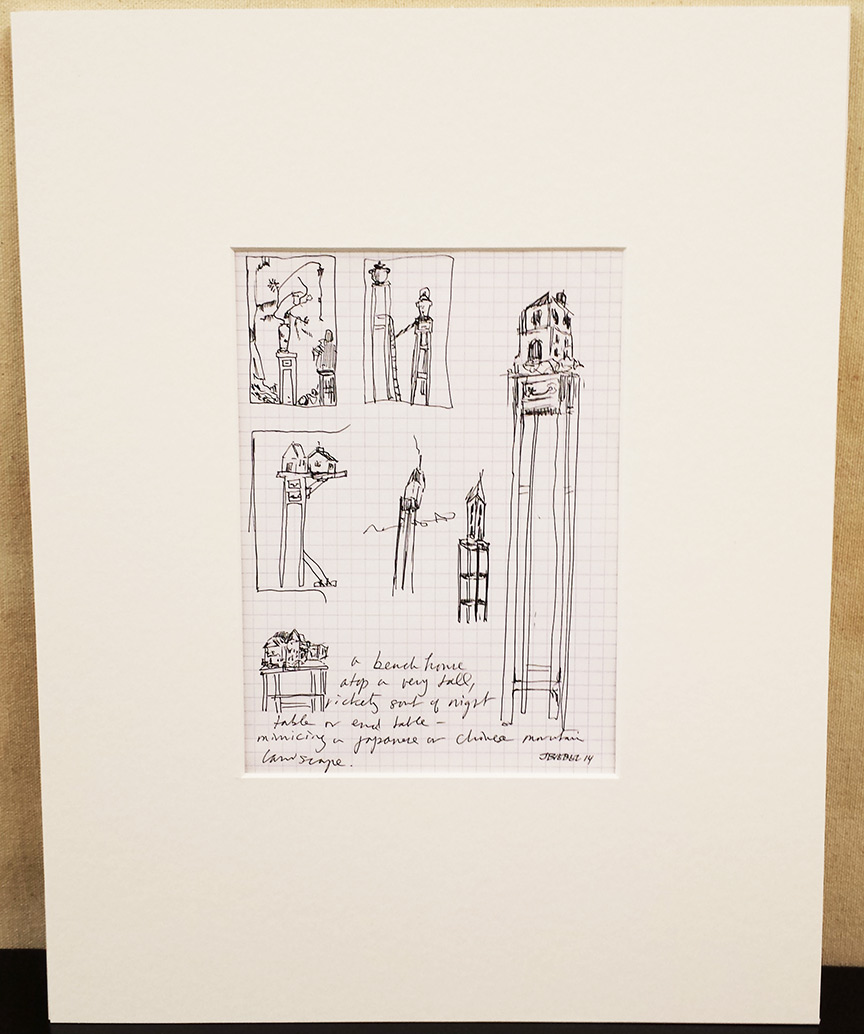 a beach house
atop a very tall,
rickety sort of night
table or end table –
mimicing a Japanese or Chinese mountain
landscape.
14